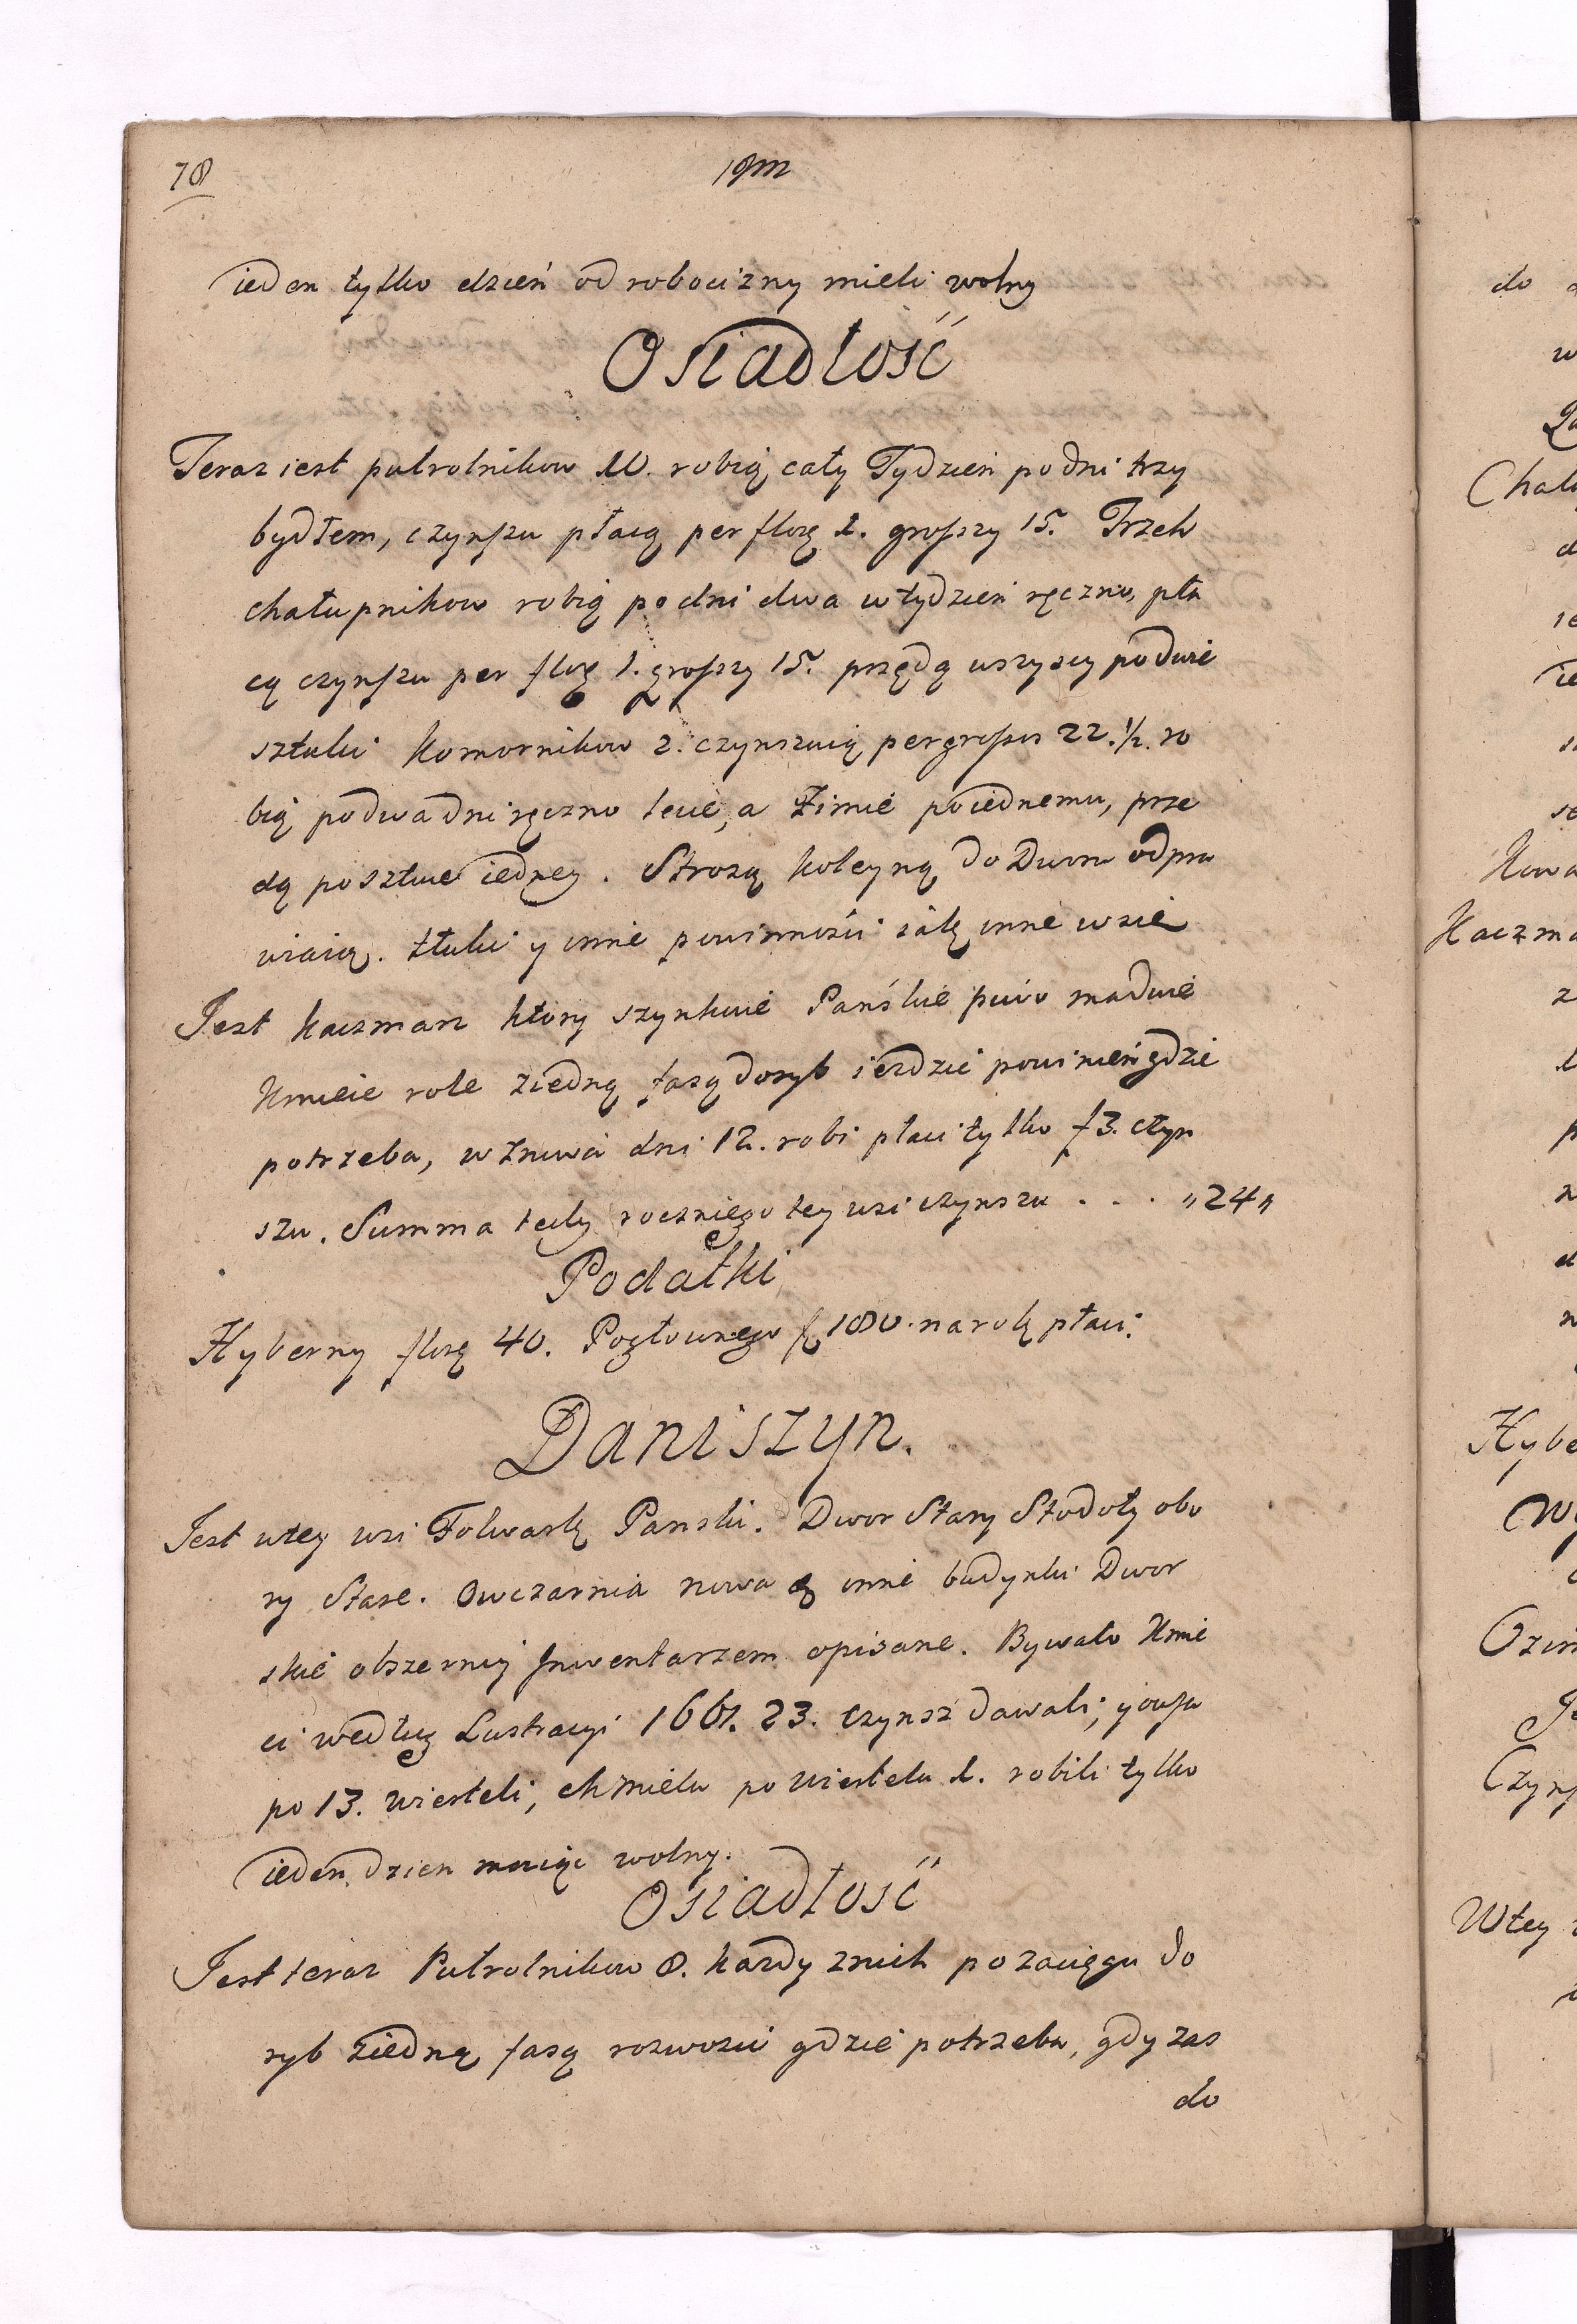 78
ieden tylko dzień od robocizny mieli wolny
Osiadłość
Teraz iest pułrolnikow 10. robią cały Tydzień po dni trzy
bydłem, czynszu płacą per flor 1. groszy 15. Trzech
chałupnikow robią po dni dwa w tydzień ręczno, pła
cą czynszu per flor 1. groszy 15. przędą wszyscy po dwie
sztuki Komornikow 2. czynszuią per groszos 22. 1/2. ro
bią po dwa dni ręczno lecie, a Zimie po iednemu, prze
dą po sztuce iedney. Strożą koleyną do Dworu odpra
wiaią. tłuki y inne powinności iák inne wsie
Jest kaczmarz ktory szynkuie Pańskie piwo ma dwie
Kmiecie role z iedną fasą do ryb ieździć powinień gdzie
potrzeba, w żniwa dni 12. robi płaci tylko f 3. czyn
szu. Summa tedy rocznego tey wsi czynszu . . . „24„
Podatki
Hyberny flor 40. Pogłownego f 180. na rok płaci.
Daniszyn.
Jest w tey wsi Folwark Panski. Dwor Stary Stodoły obo
ry Stare. Owczarnia nowa y inne budynki Dwor
skie obszerniey Jnwentarzem opisane. Bywało Kmie
ci według Lustracyi 1661. 23. czynsz dawali, y owsa
po 13. wierteli, chmielu po wiertelu 1. robili tylko
ieden dzien maiąc wolny.
Osiadłość
Jest teraz Pułrolnikow 8. każdy z nich po zaciągu do
ryb z iedną fasą rozwozić gdzie potrzeba, gdy zas
do